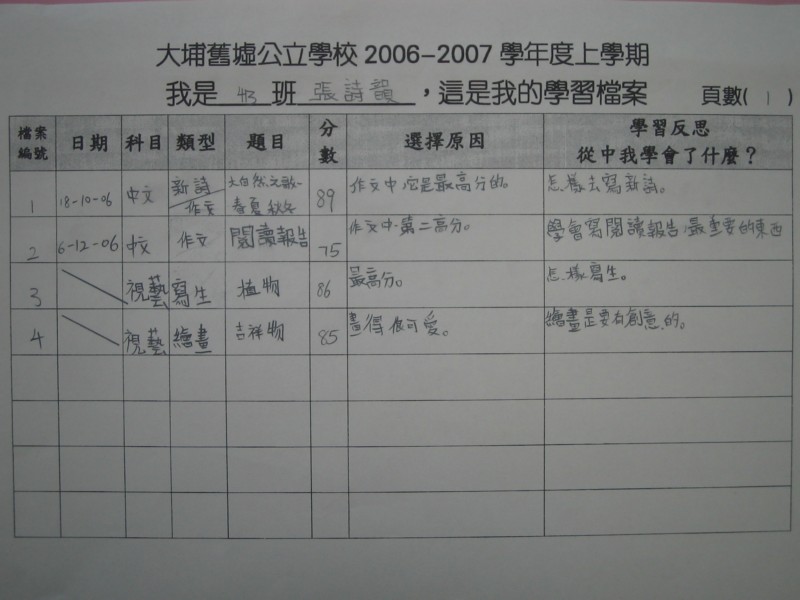 大埔舊墟公立學校 2006-2007 學年度上學期
我是 4B 班 張詩韻 ，這是我的學習檔案 頁數( 1 )
檔案編號 日期 科目 類型 題目 分數 選擇原因 學習反思 從中我學會了什麼？
1 18-10-06 中文 新詩 作文 大自然之歌- 春夏秋冬 89 作文中,它是最高分的。 怎樣去寫新詩。
2 6-12-06 中文 作文 閱讀報告 75 作文中,第二高分。 學會寫閱讀報告,最重要的東西
3 視藝 寫生 植物 86 最高分。 怎樣寫生。
4 視藝 繪畫 吉祥物 85 畫得很可愛。 繪畫是要有創意的。